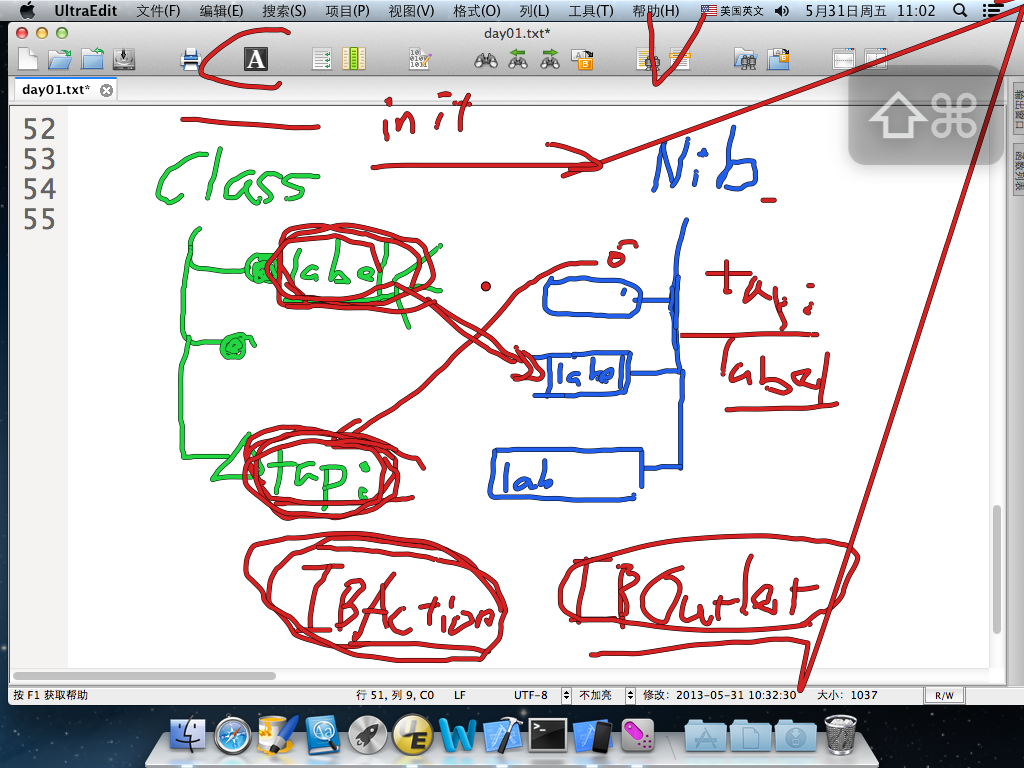 UltraEdit 文件(F) 编辑(E) 搜索(S) 项目(P) 视图(V) 格式(O) 列(L) 工具(T) 帮助(H) 美国英文 5月31日周五 11:02
day01.txt*
day01.txt*
输出窗口
函数列表
52
53
54
55
init
Class
Nib
label
tap:
label
lab
tap:
label
IBAction
IBOutlet
按 F1 获取帮助 行 51, 列 9, C0 LF UTF-8 不加亮 修改: 2013-05-31 10:32:30 大小: 1037 R/W